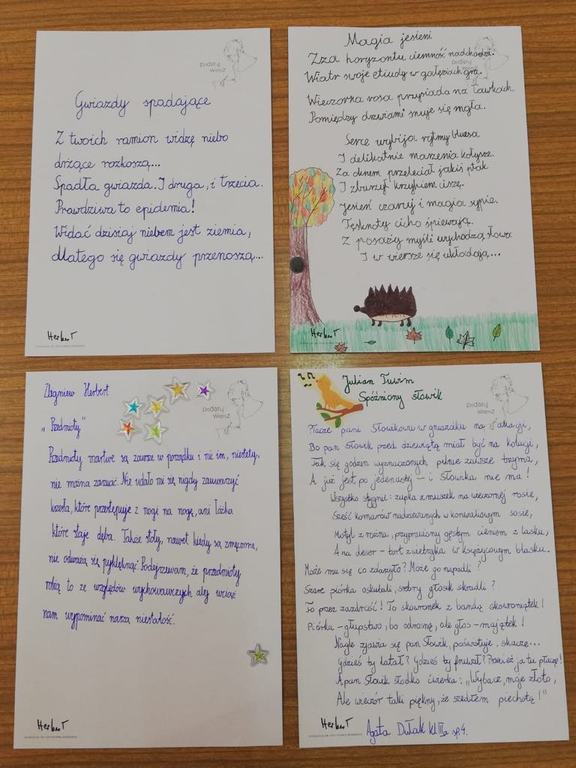 PODARUJ
WIERSZ
Gwiazdy spadające
Z twoich ramion widzę niebo
drżące rozkoszą...
Spadła gwiazda. I druga, i trzecia.
Prawdziwa to epidemia!
Widać dzisiaj niebem jest ziemia,
dlatego się gwiazdy przenoszą...
HerberT
Magia jesieni
PODARUJ
WIERSZ
Zza horyzontu ciemność nadchodzi.
Wiatr swoje etiudy w gałęziach gra.
Wieczorka rosa przysiada na ławkach.
Pomiędzy drzewami snuje się mgła.
Serce wybija rytmy bluesa
I delikatnie marzenia kołysze.
Za oknem przeleciał jakiś ptak
I zburzył krzykiem ciszę.
Jesień czaruje i magią sypie.
Tęsknoty cicho śpiewają.
Z posaży myśli wychodzą słowa
I w wiersze się układają...
HerberT
Zbigniew Herbert
PODARUJ
WIERSZ
„Przedmioty"
Przedmioty martwe są zawsze w porządku i nic im, niestety,
nie można zarzucić. Nie udało mi się nigdy zauważyć
krzesła, które przestępuje z nogi na nogę, ani łóżka
które staje dęba. Także stoły, nawet kiedy są zmęczone,
nie odważą się przyklęknąć. Podejrzewam, że przedmioty
robią to ze względów wychowawczych, aby wciąż
nam wypominać naszą niestałość.
HerberT
Julian Tuwim
Spóźniony słowik
PODARUJ
WIERSZ
Płacze pani Słowikowa w gniazdku na akacji,
Bo pan Słowik przed dziewiątą miał być na kolacji,
Tak się godzin wyznaczonych pilnie zawsze trzyma,
A już jest po jedenastej – i Słowika nie ma!
Wszystko stygnie: zupka z muszek na wieczornej rosie,
Sześć komarów nadziewanych w konwaliowym sosie,
Motyl z rożna, przyprawiony gęstym cieniem z lasku,
A na deser – tort z wietrzyka w księżycowym blasku.
Może mu się co zdarzyło? Może go napadli?
Szare piórka oskubali, srebrny głosik skradli?
To przez zazdrość! To skowronek z bandą skowroniątek!
Piórka – głupstwo, bo odrosną, ale głos – majątek!
Nagle zjawia się pan Słowik, poświstuje, skacze...
Gdzieś ty latał? Gdzieś ty fruwał? Przecież ja tu płaczę!
A pan Słowik słodko ćwierka: „Wybacz, moje złoto,
Ale wieczór taki piękny, że szedłem piechotą!"
HerberT
Agata Dułak kl III a sp 4.